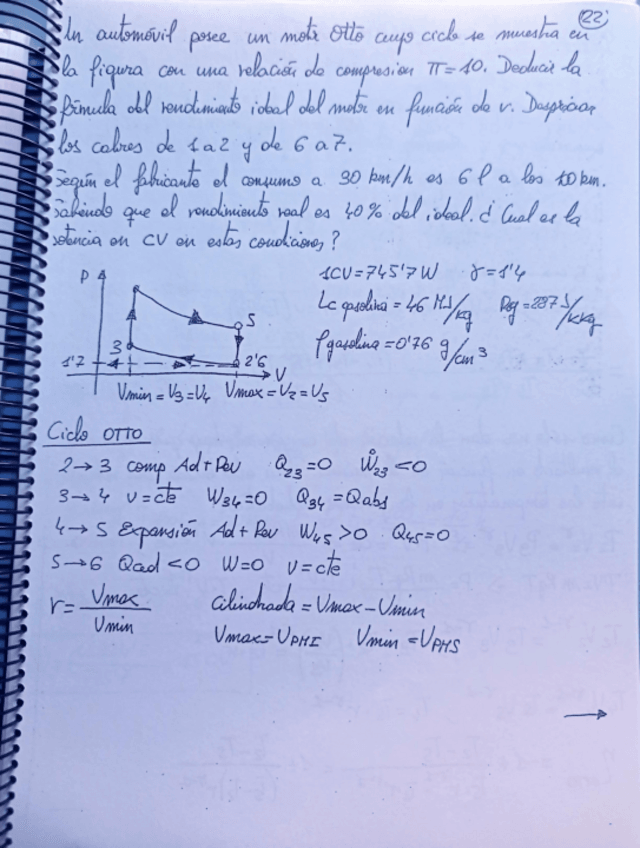 22
Un automóvil posee un motor Otto cuyo ciclo se muestra en
la figura con una relación de compresion π=10. Deducir la
fórmula del rendimiento ideal del motor en función de r. Despreciar
los calores de 1 a 2 y de 6 a 7.
Según el fabricante el consumo a 30 km/h es 6 l a los 100 km.
Sabiendo que el rendimiento real es 40% del ideal. ¿Cual es la
potencia en CV en estas condiciones?
1CV=745'7W γ=1'4
Lc gasolina = 46 MJ/kg Rg=287 J/kKg
ρ gasolina = 0'76 g/cm³
P
5
3
1'7
2'6
V
Vmin = V3 = V4 Vmax = V2 = V5
Ciclo OTTO
2→3 comp Ad+Rev Q23=0 W23<0
3→4 v=cte W34=0 Q34=Qabs
4→5 Expansión Ad+Rev W45>0 Q45=0
5→6 Qad<0 W=0 v=cte
r= Vmax/Vmin Cilindrada = Vmax-Vmin
Vmax=VPMI Vmin=VPMS
→